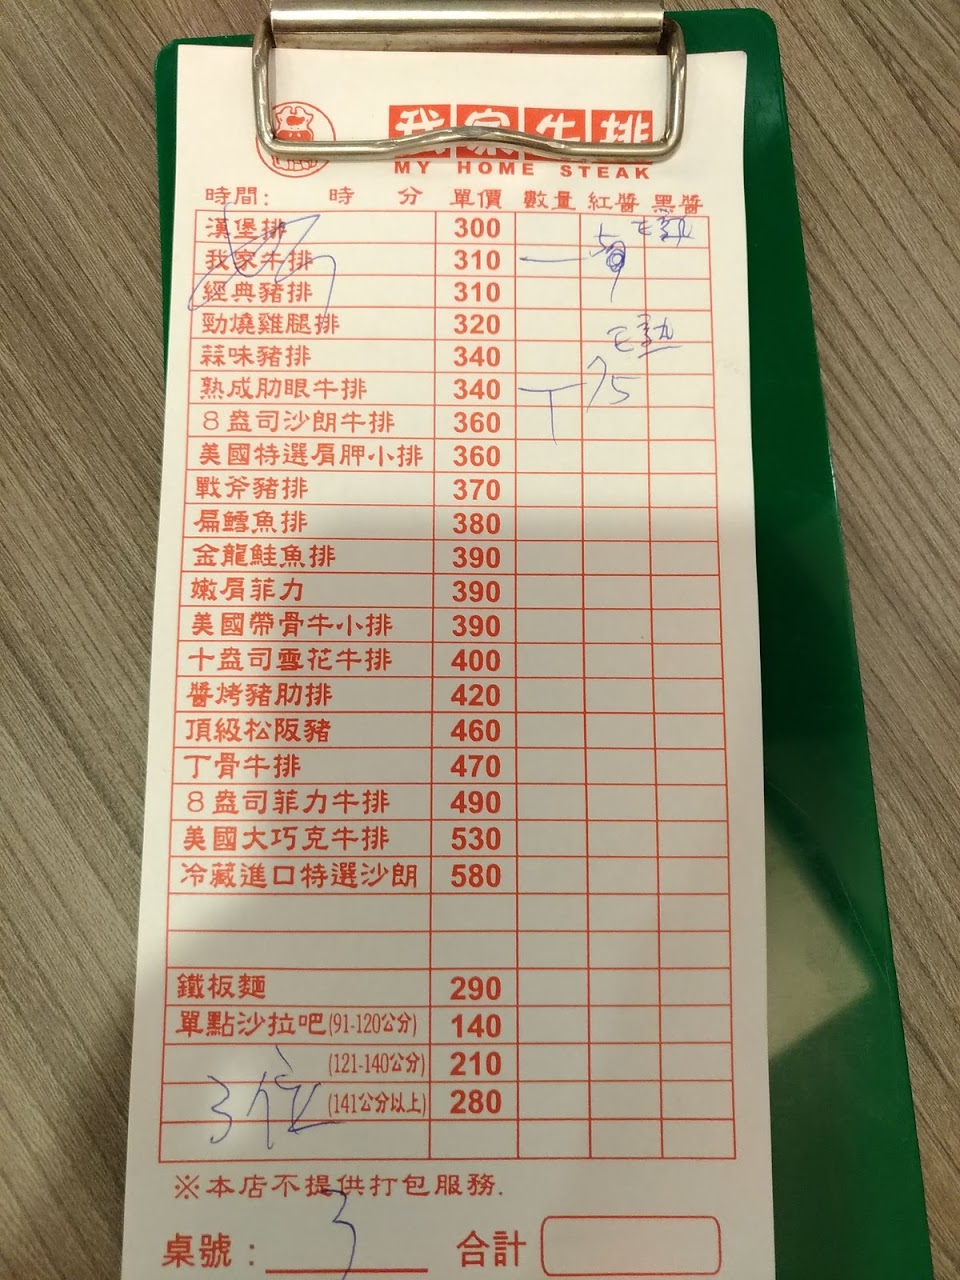 我家牛排
MY HOME STEAK
時間: 時 分 單價 數量 紅醬 黑醬
漢堡排 300 七熟
我家牛排 310 一
經典豬排 310
勁燒雞腿排 320 七熟
蒜味豬排 340
熟成肋眼牛排 340 丅 75
8盎司沙朗牛排 360
美國特選肩胛小排 360
戰斧豬排 370
扁鱈魚排 380
金龍鮭魚排 390
嫩肩菲力 390
美國帶骨牛小排 390
十盎司雪花牛排 400
醬烤豬肋排 420
頂級松阪豬 460
丁骨牛排 470
8盎司菲力牛排 490
美國大巧克牛排 530
冷藏進口特選沙朗 580
鐵板麵 290
單點沙拉吧(91-120公分) 140
(121-140公分) 210
3位 (141公分以上) 280
※本店不提供打包服務.
桌號: 3 合計